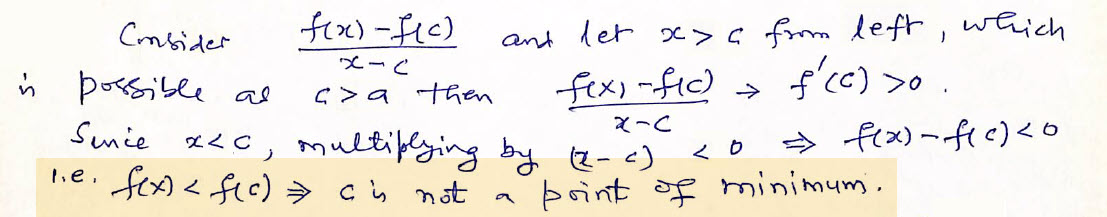 Consider f(x) - f(c) / x - c and let x > c from left, which
is possible as c > a then f(x) - f(c) / x - c → f'(c) > 0.
Since x < c, multiplying by (x - c) < 0 ⇒ f(x) - f(c) < 0
i.e. f(x) < f(c) ⇒ c is not a point of minimum.